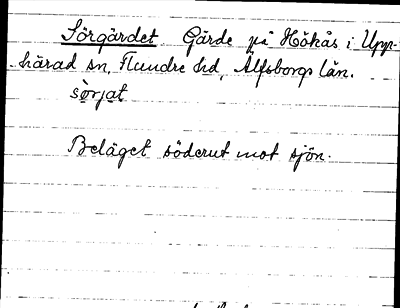 Sörgärdet Gärde på Hökås i Upp-
härad sn, Flundre hd, Älfsborgs län.
sörjat
Beläget söderut mot sjön.